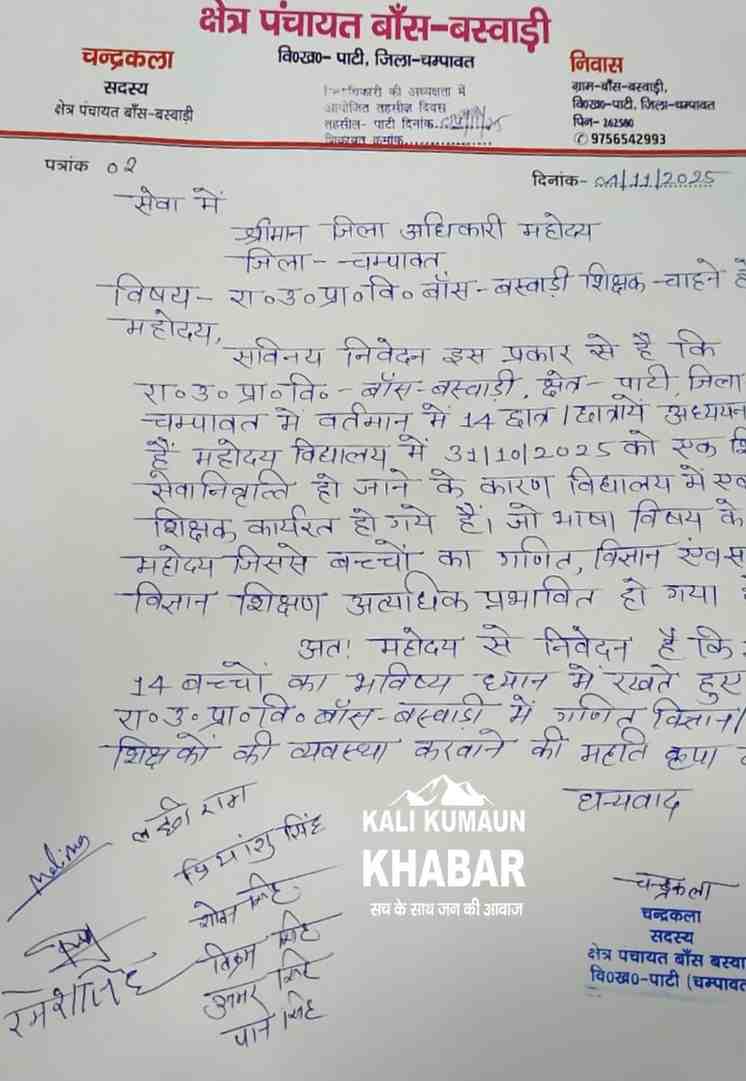 क्षेत्र पंचायत बाँस-बस्वाड़ी
वि०ख०- पाटी, जिला-चम्पावत
चन्द्रकला
सदस्य
क्षेत्र पंचायत बाँस-बस्वाड़ी
की अध्यक्षता में
आयोजित तहसील दिवस
तहसील- पाटी दिनांक
निवास
ग्राम-बाँस-बस्वाड़ी,
वि०ख०-पाटी, जिला-चम्पावत
पिन- 262580
✆ 9756542993
पत्रांक 02
दिनांक- 01/11/2025
सेवा में
श्रीमान जिला अधिकारी महोदय
जिला- चम्पावत
विषय- रा०उ०प्रा०वि० बाँस-बस्वाड़ी शिक्षक चाहने
महोदय,
सविनय निवेदन इस प्रकार से है कि
रा०उ०प्रा०वि०-बाँस-बस्वाड़ी, क्षेत्र- पाटी, जिला
चम्पावत में वर्तमान में 14 छात्र/छात्रायें अध्ययन
हैं महोदय विद्यालय में 31/10/2025 को एक
सेवानिवृत्ति हो जाने के कारण विद्यालय में
शिक्षक कार्यरत हो गये हैं। जो भाषा विषय के
महोदय जिससे बच्चों का गणित, विज्ञान
विज्ञान शिक्षण अत्यधिक प्रभावित हो गया
अत: महोदय से निवेदन है कि
14 बच्चों का भविष्य ध्यान में रखते हुए
रा०उ०प्रा०वि० बाँस-बस्वाड़ी में गणित विज्ञान/
शिक्षकों की व्यवस्था करवाने की महति कृपा
धन्यवाद
राम
प्रियांशु सिंह
सिंह
विक्रम सिंह
अमर सिंह
पान सिंह
रमेश सिंह
KALI KUMAUN
KHABAR
सच के साथ जन की आवाज
चन्द्रकला
चन्द्रकला
सदस्य
क्षेत्र पंचायत बाँस बस्वा
वि०ख०-पाटी (चम्पावत